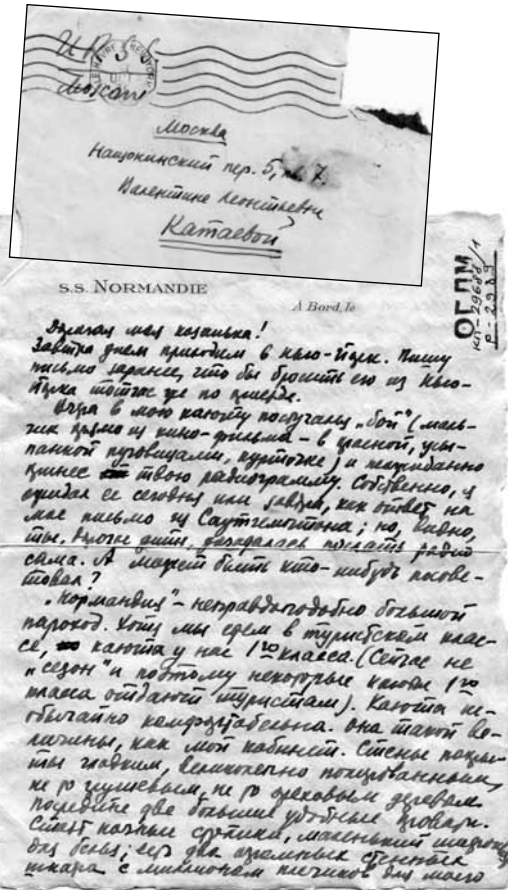 U R S S
Moscou
LE HAVRE NEW YORK
Москва
Нащокинский пер. 5, кв. 7.
Валентине Леонтьевне
Катаевой
S.S. NORMANDIE
A Bord, le
ОГЛМ
КП-29688/1
Р-2989
Дорогая моя козанька!
Завтра днем приходим в Нью-Йорк. Пишу
письмо заранее, что бы бросить его из Нью-
Йорка тотчас же по приезде.
Вчера в мою каюту постучался „бой“ (маль-
чик прямо из кино-фильма – в красной, усы-
панной пуговицами, курточке) и неожиданно
принес твою радиограмму. Собственно, я
ожидал ее сегодня или завтра, как ответ на
мое письмо из Саутгемптона; но, видно,
ты, дитя, догадалась послать радио
сама. А может быть кто-нибудь посове-
товал?
„Нормандия“ – неправдоподобно большой
пароход. Хотя мы едем в туристском клас-
се, каюта у нас 1го класса. (Сейчас не
„сезон“ и поэтому некоторые каюты 1го
класса отдают туристам). Каюта не-
обычайно комфортабельна. Она такой ве-
личины, как мой кабинет. Стены покры-
ты гладким, великолепно полированным,
не то грушевым, не то ореховым деревом
посредите две большие удобные кровати.
Стоят ночные столики, маленький шкафчик
для белья; есть два огромных стенных
шкафа с миллионом плечиков для моего